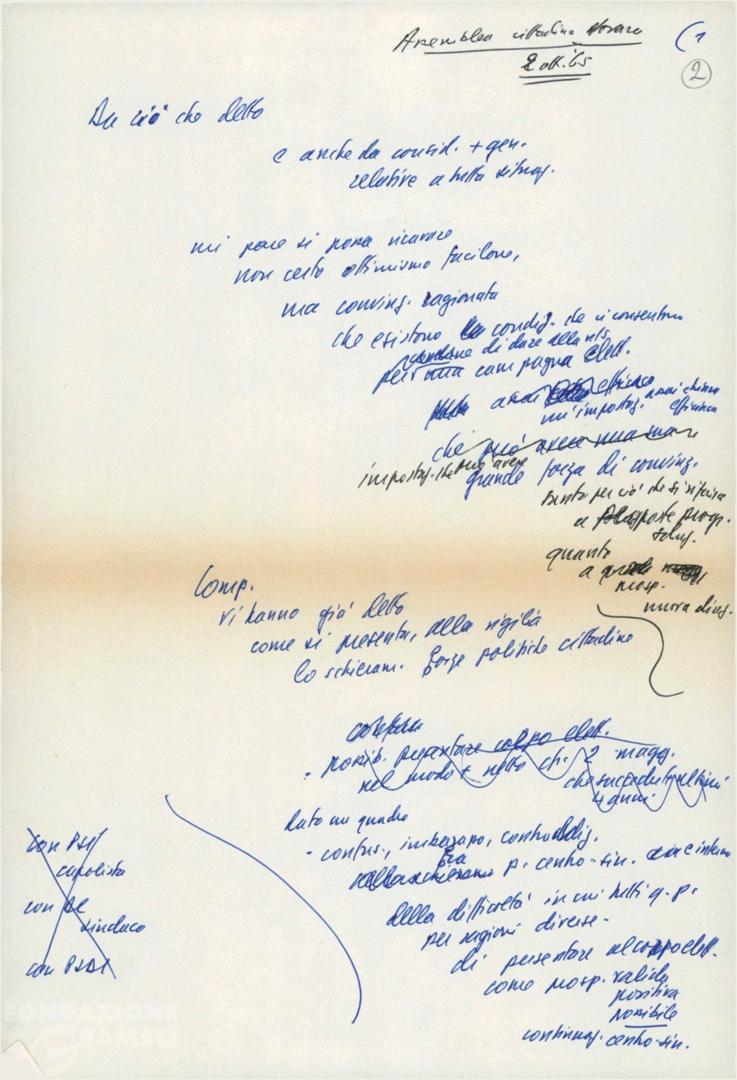 Assemblea cittadina Novara
2 ott. 65
(1
2
Da ciò che detto
e anche da consid. + gen.
relative a tutta situaz.
mi pare si possa ricavare
non certo ottimismo facilone,
ma convinz. ragionata
che esistono condiz. che ci consentono
di dare alla ns.
per una campagna elett.
un'impostaz. assai chiara
efficace
che può avere una
impostaz. che può avere
grande forza di convinz.
tanto per ciò che si riferisce
a proposte progr.
soluz.
quanto
a
prosp.
nuova
Comp.
vi hanno già detto
come si presenta, alla vigilia
lo schieram. forze politiche cittadine
- possib. presentare corpo elett.
nel modo + netto 2 magg.
4 anni
Dato un quadro
- confus., imbarazzo, contraddiz.
tra p. centro-sin. e interno
della difficoltà in cui tutti q. p.
per ragioni diverse -
di presentare al corpo elett.
come prosp. valida
positiva
possibile
continuaz. centro-sin.
con PSI
capolista
con
sindaco
con PSDI
FONDAZIONE
GRAMSCI